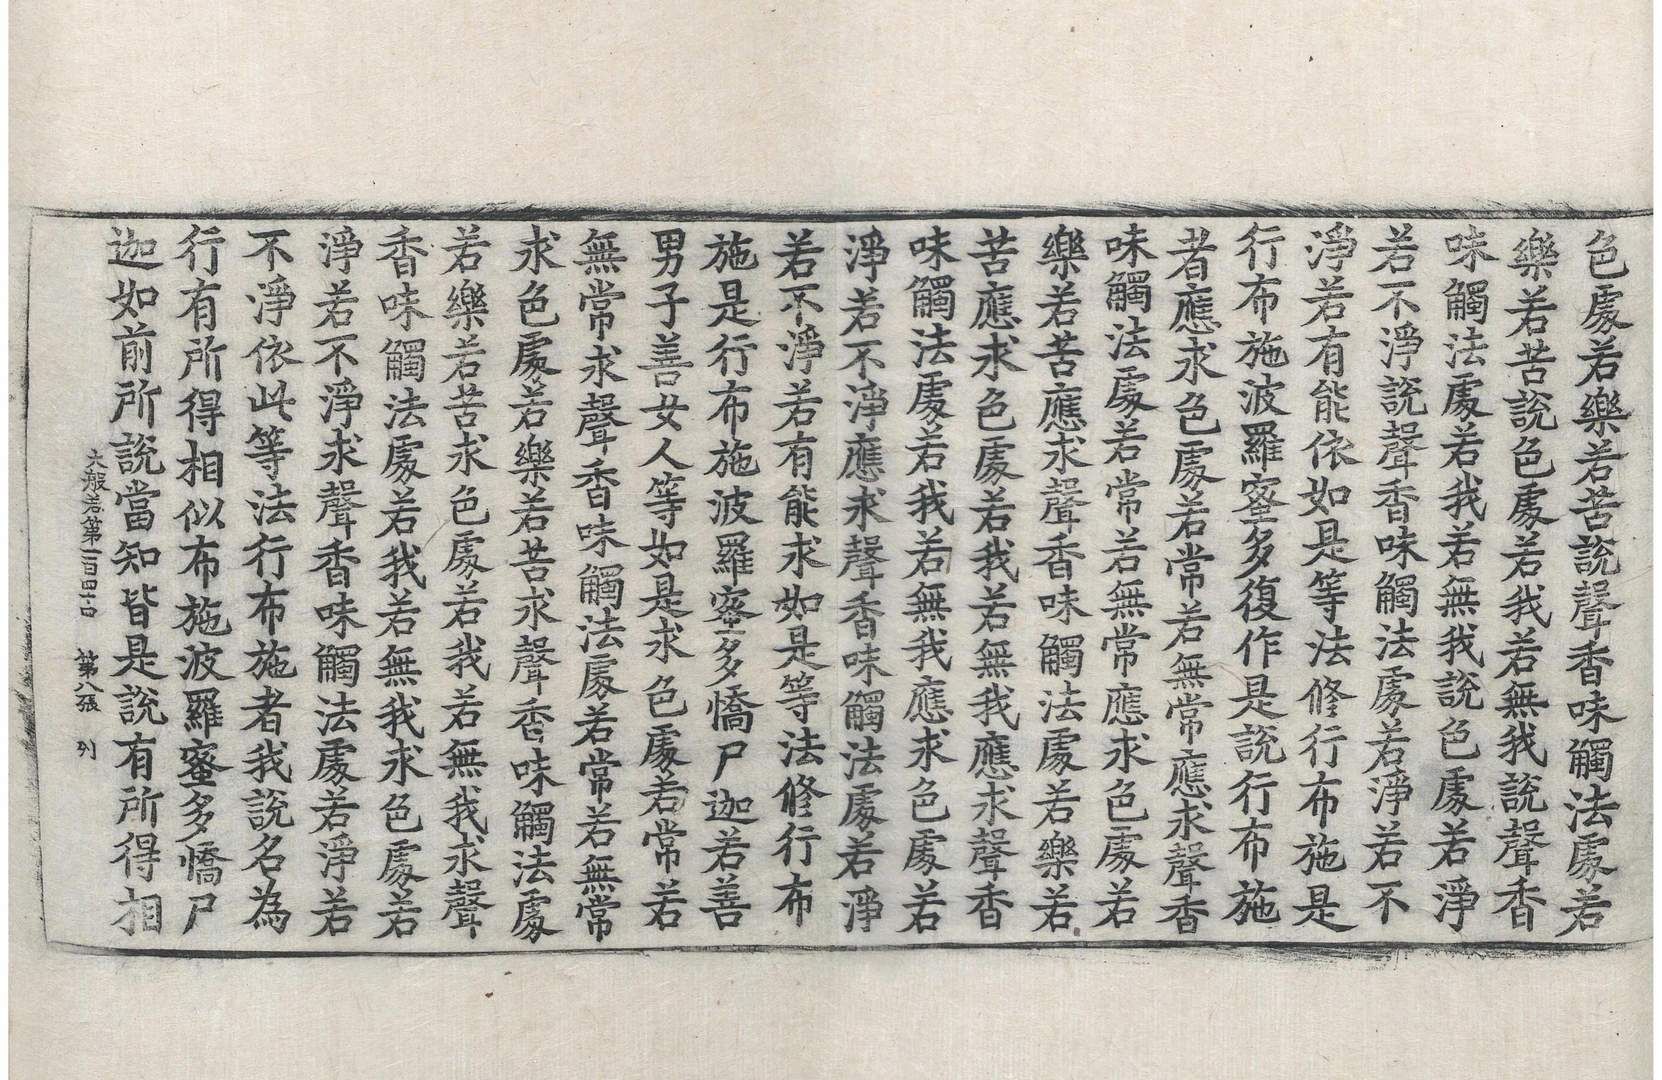 色處若樂若苦說聲香味觸法處若
樂若苦說色處若我若無我說聲香
味觸法處若我若無我說色處若淨
若不淨說聲香味觸法處若淨若不
淨若有能依如是等法修行布施是
行布施波羅蜜多復作是說行布施
者應求色處若常若無常應求聲香
味觸法處若常若無常應求色處若
樂若苦應求聲香味觸法處若樂若
苦應求色處若我若無我應求聲香
味觸法處若我若無我應求色處若
淨若不淨應求聲香味觸法處若淨
若不淨若有能求如是等法修行布
施是行布施波羅蜜多憍尸迦若善
男子善女人等如是求色處若常若
無常求聲香味觸法處若常若無常
求色處若樂若苦求聲香味觸法處
若樂若苦求色處若我若無我求聲
香味觸法處若我若無我求色處若
淨若不淨求聲香味觸法處若淨若
不淨依此等法行布施者我說名為
行有所得相似布施波羅蜜多憍尸
迦如前所說當知皆是說有所得相
大般若第一百四十四 第八張 列